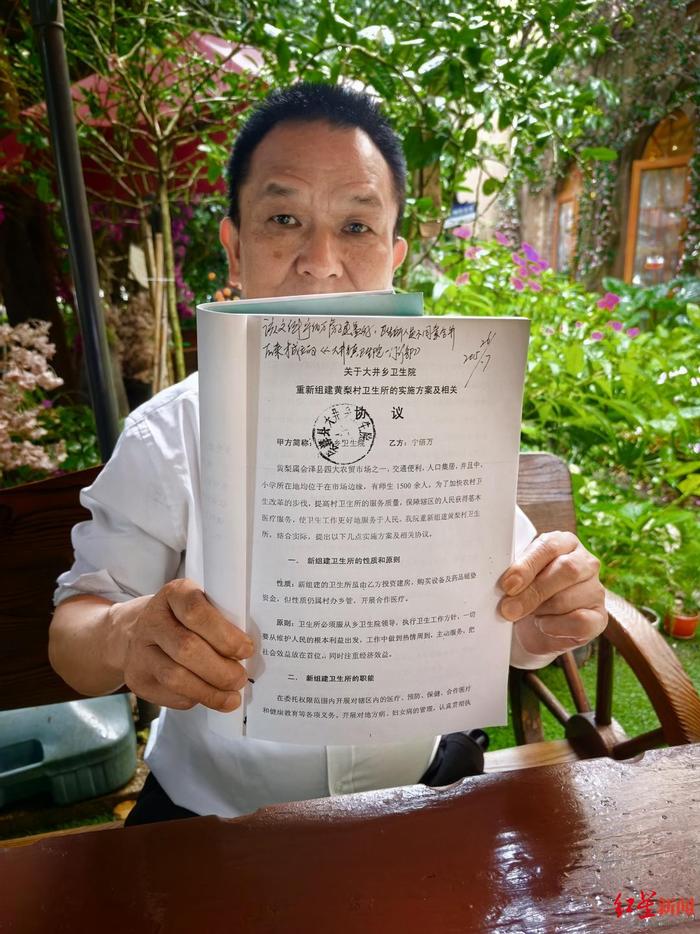 关于大井乡卫生院
重新组建黄梨村卫生所的实施方案及相关
协 议
甲方简称: 乡卫生院 乙方:宁倍万
黄梨属会泽县四大农贸市场之一,交通便利,人口集居,并且中、
小学所在地均位于在市场边缘,有师生 1500 余人,为了加快农村卫
生改革的步伐,提高村卫生所的服务质量,保障辖区的人民获得基本
医疗服务,使卫生工作更好地服务于人民,我院重新组建黄梨村卫生
所,结合实际,提出以下几点实施方案及相关协议。
一、 新组建卫生所的性质和原则
性质:新组建的卫生所虽由乙方投资建房,购买设备及药品铺垫
资金,但性质仍属村办乡管,开展合作医疗。
原则:卫生所必须服从乡卫生院领导,执行卫生工作方针,一切
要从维护人民的根本利益出发,工作中做到热情周到,主动服务,把
社会效益放在首位,同时注重经济效益。
二、 新组建卫生所的职能
在委托权限范围内开展对辖区内的医疗、预防、保健、合作医疗
和健康教育等各项义务。开展对地方病,妇女病的管理,认真贯彻执
1
红星新闻